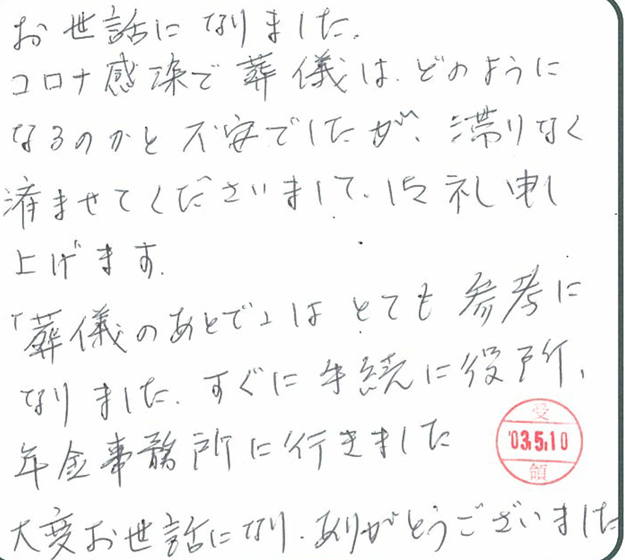 お世話になりました.
コロナ感染で葬儀は.どのように
なるのかと不安でしたが、滞りなく
済ませてくださいまして.御礼申し
上げます.
「葬儀のあとで」はとても参考に
なりました.すぐに手続に役所、
年金事務所に行きました
大変お世話になり.ありがとうございました
受
'03.5.10
領